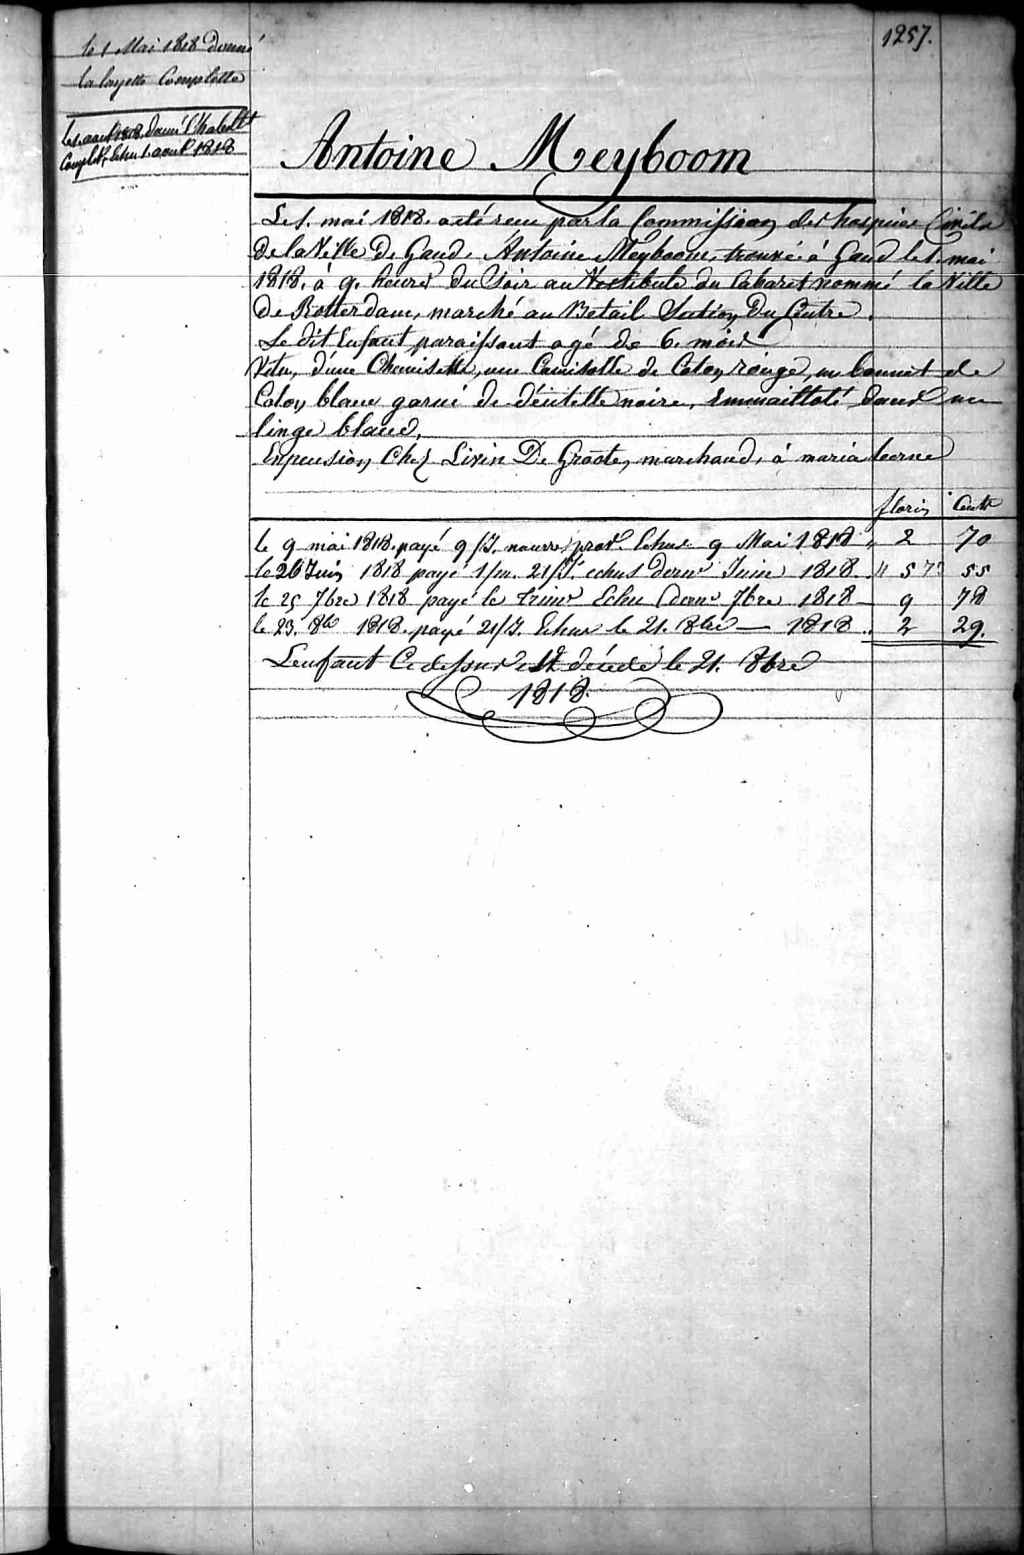 1257.
le 1 Mai 1818 donné
la layette Complette
le 1. aout 1818. donné l'habillt
Complet, Echu 1. aout 1818
Antoine Meyboom
Le 1. mai 1818. a eté recu par la Commission des hospices Civils
de la Ville De Gand, Antoine Meyboom, trouvé à Gand le 1. mai
1818. à 9. heures du Soir au Vestibule du Cabaret nommé la Ville
De Rotterdam, marché au Betail Section Du Centre.
Le dit Enfant paraissant agé de 6. mois
Vetu, d'une Chemisette, une Camisolle de Coton rouge, un bonnet de
Coton blanc garni de déntelle noire, Emmailloté dans un
linge blanc,
Enpension Chez Livin De Groote, marchand, à mariakerne
florin Cents
le 9 mai 1818. payé 9/J. nourre prove. Echus 9 Mai 1818 " 2 70
le 26 Juin 1818 payé 1/m. 21/J. echus dernr Juin 1818 " 5 55
le 25 7bre 1818 payé le trimr Echu dernr 7bre 1818 — 9 78
le 23. 8bre 1818. payé 21/J. Echus le 21. 8bre — 1818 .. 2 29.
L'enfant Cidessus est décédé le 21. 8bre
1818.